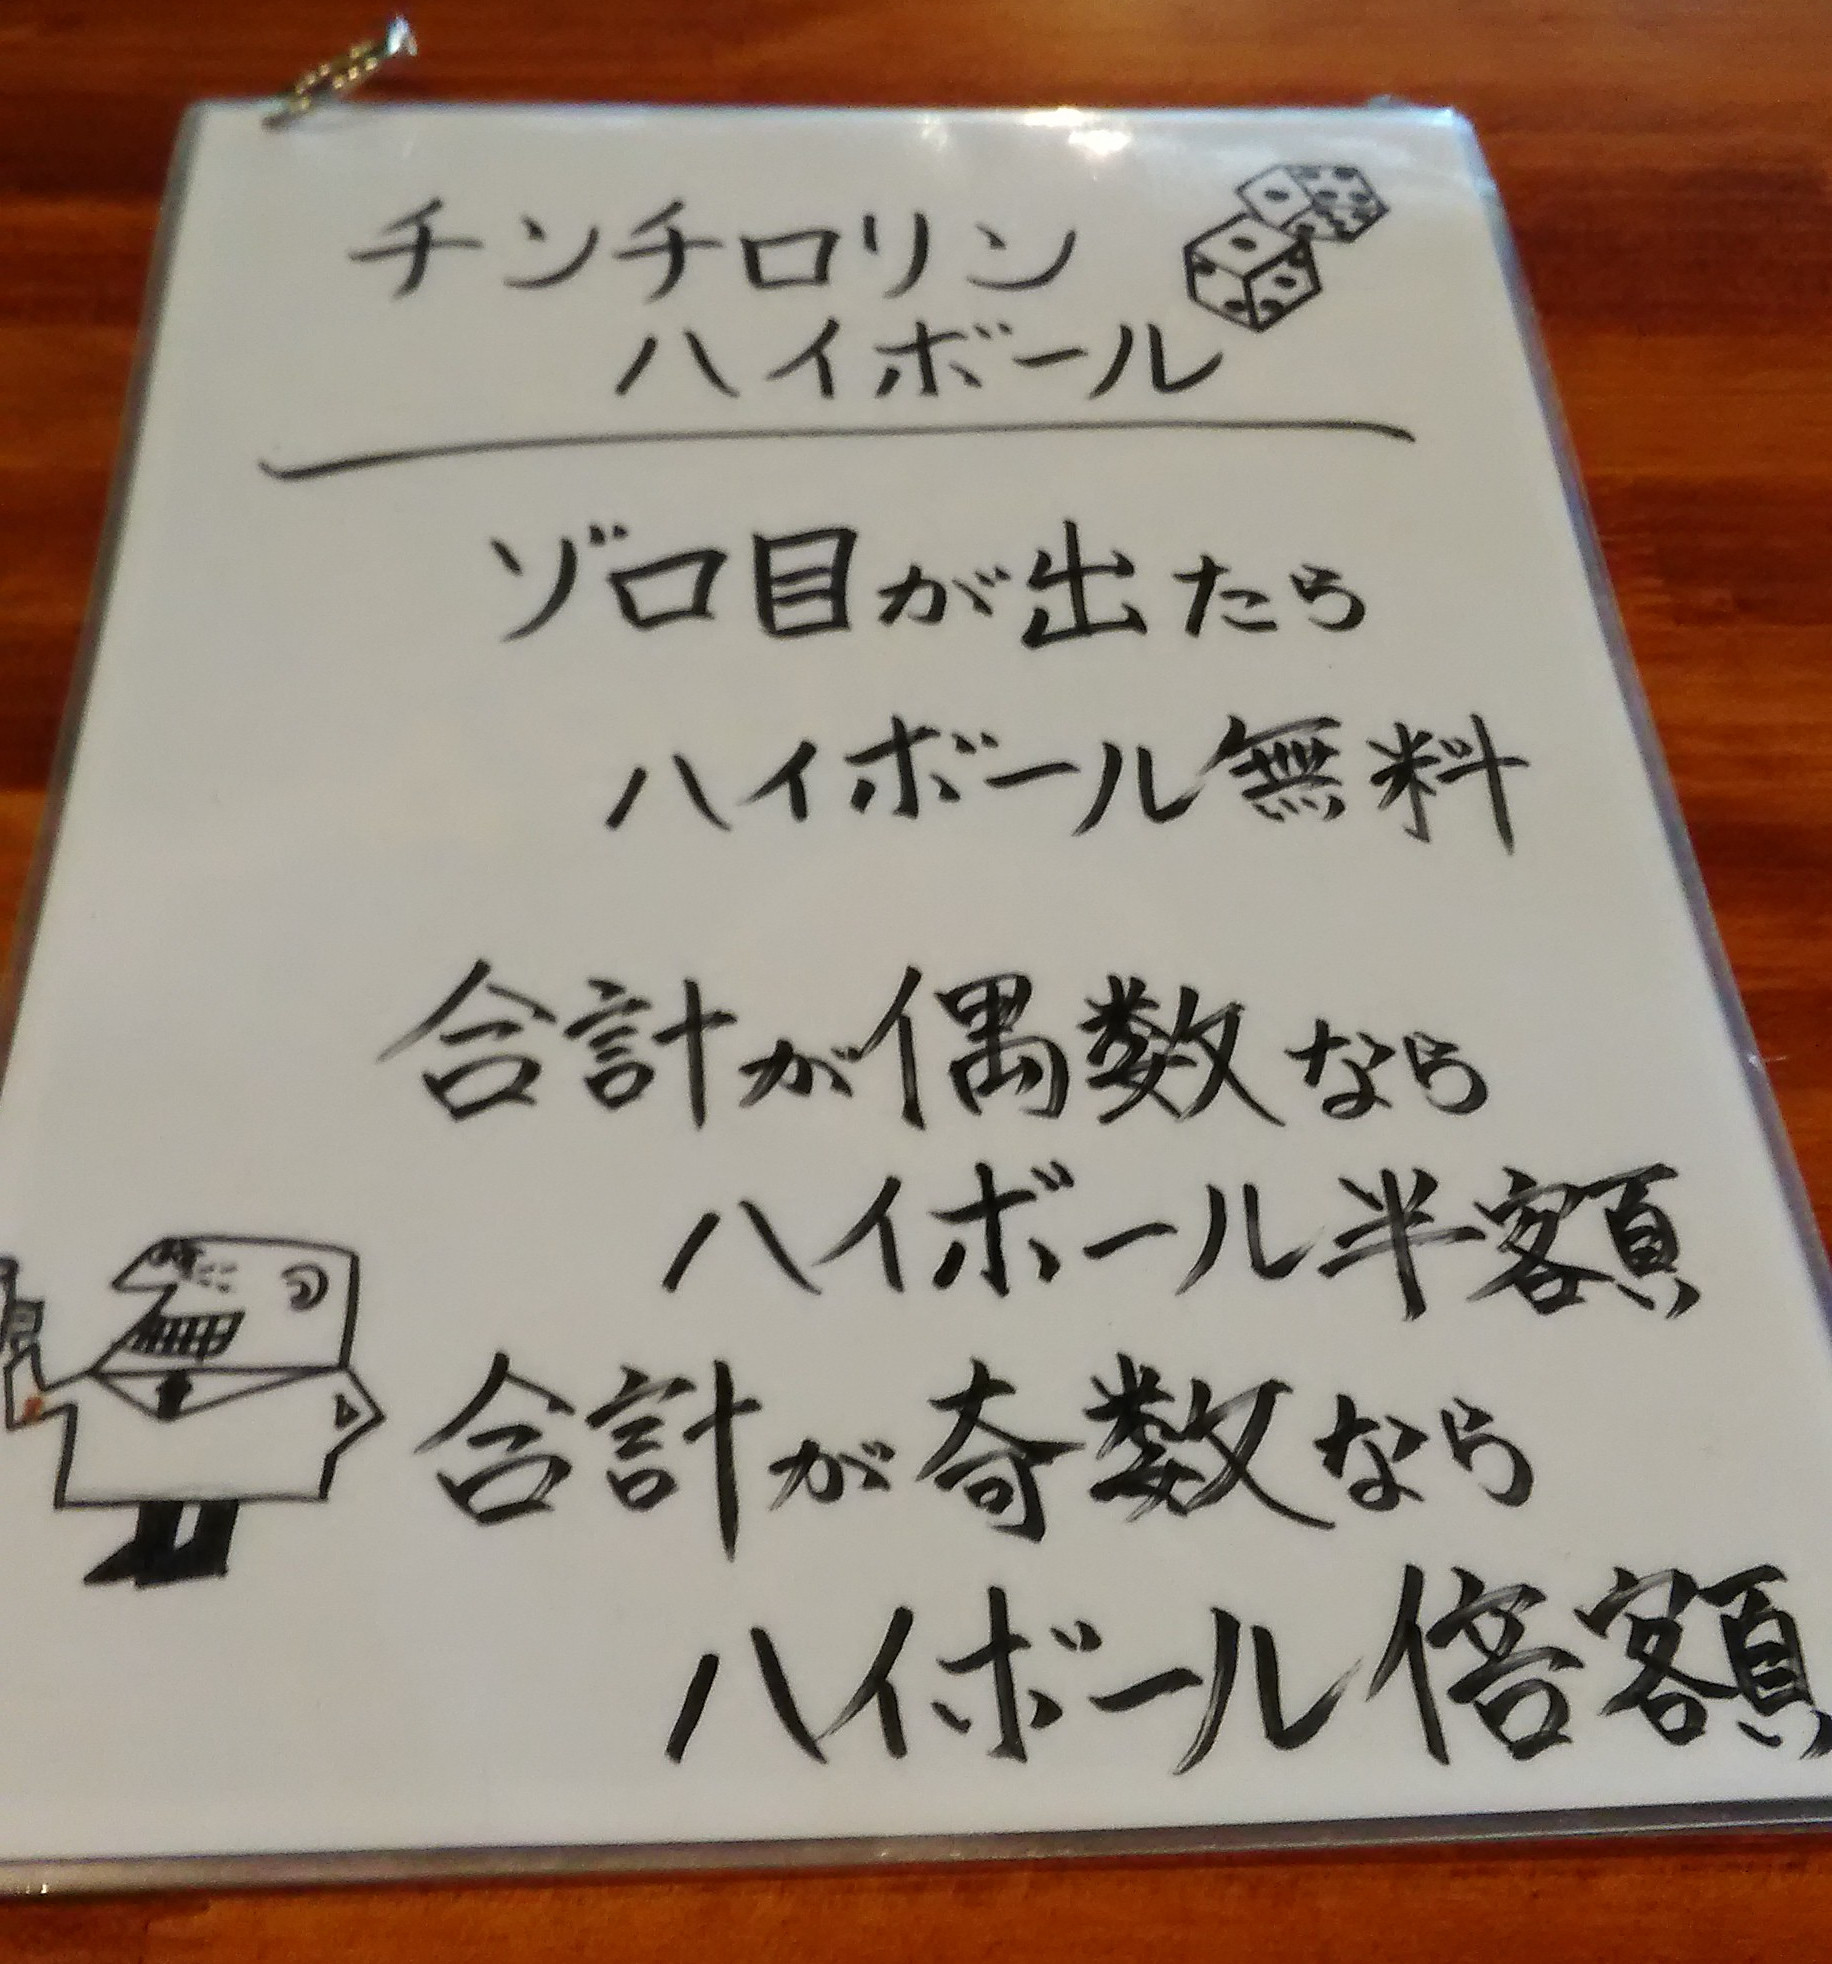 チンチロリン
ハイボール
ゾロ目が出たら
ハイボール無料
合計が偶数なら
ハイボール半額
合計が奇数なら
ハイボール倍額